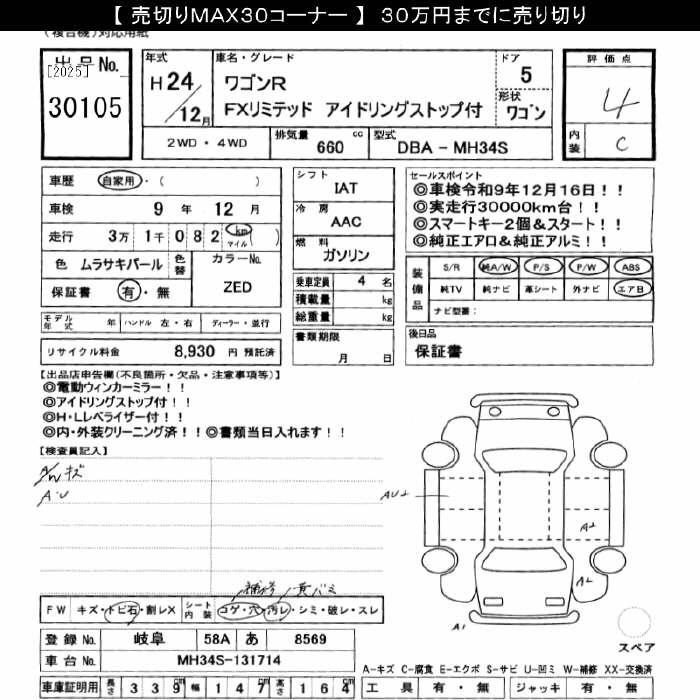 【 売切りMAX30コーナー 】 30万円までに売り切り
(複合機)対応用紙
出品No.
[2025]
30105
年式
H 24
/12月
車名・グレード
ワゴンR
FXリミテッド アイドリングストップ付
ドア
5
形状
ワゴン
2WD・4WD
排気量
660 cc
型式
DBA - MH34S
評価点
4
内装
C
車歴 自家用・( )
車検 9 年 12 月
走行 3万 1千 0 8 2 km マイル ( )
色 ムラサキパール
色替
カラーNo.
ZED
保証書 有・無
モデル年式 年 ハンドル 左・右 ディーラー・並行
リサイクル料金 8,930 円 預託済
シフト
IAT
冷房
AAC
燃料
ガソリン
乗車定員 4 名
積載量 kg
総重量 kg
書類期限
月 日
セールスポイント
◎車検令和9年12月16日！！
◎実走行30000km台！！
◎スマートキー2個＆スタート！！
◎純正エアロ＆純正アルミ！！
装備品
S/R 純A/W P/S P/W ABS
純TV 純ナビ 革シート 外ナビ エアB
ナビ型番:
後日品
保証書
【出品店申告欄(不良箇所・欠品・注意事項等)】
◎電動ウィンカーミラー！！
◎アイドリングストップ付！！
◎H・Lレベライザー付！！
◎内・外装クリーニング済！！◎書類当日入れます！！
【検査員記入】
A/Wキズ
A・U
補修
FW キズ・トビ石・割レX
シート内装 コゲ・穴・汚レ・シミ・破レ・スレ
登録No. 岐阜 58A あ 8569
車台No. MH34S-131714
車庫証明用 長さ 3 3 9 cm 幅 1 4 7 cm 高さ 1 6 4 cm
AU1
A2
A2
A1
スペア
A-キズ C-腐食 E-エクボ S-サビ U-凹ミ W-補修 XX-交換済
工具 有・無 ジャッキ 有・無